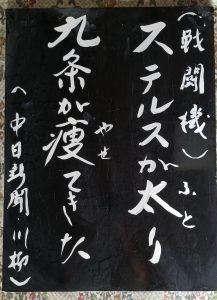 (戦闘機)
ステルスが太り
ふと
九条が痩てきた
やせ
(中日新聞川柳)